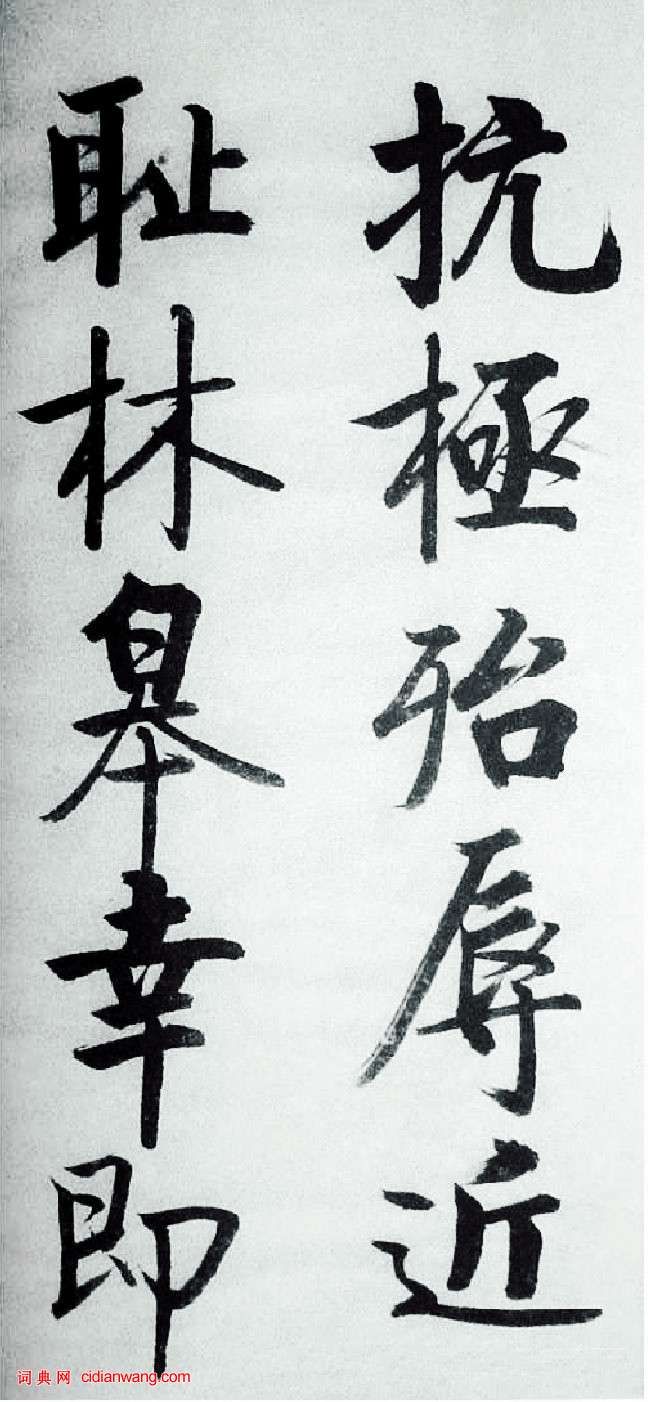 抗極殆辱近
耻林皋幸即
词典网 cidianwang.com